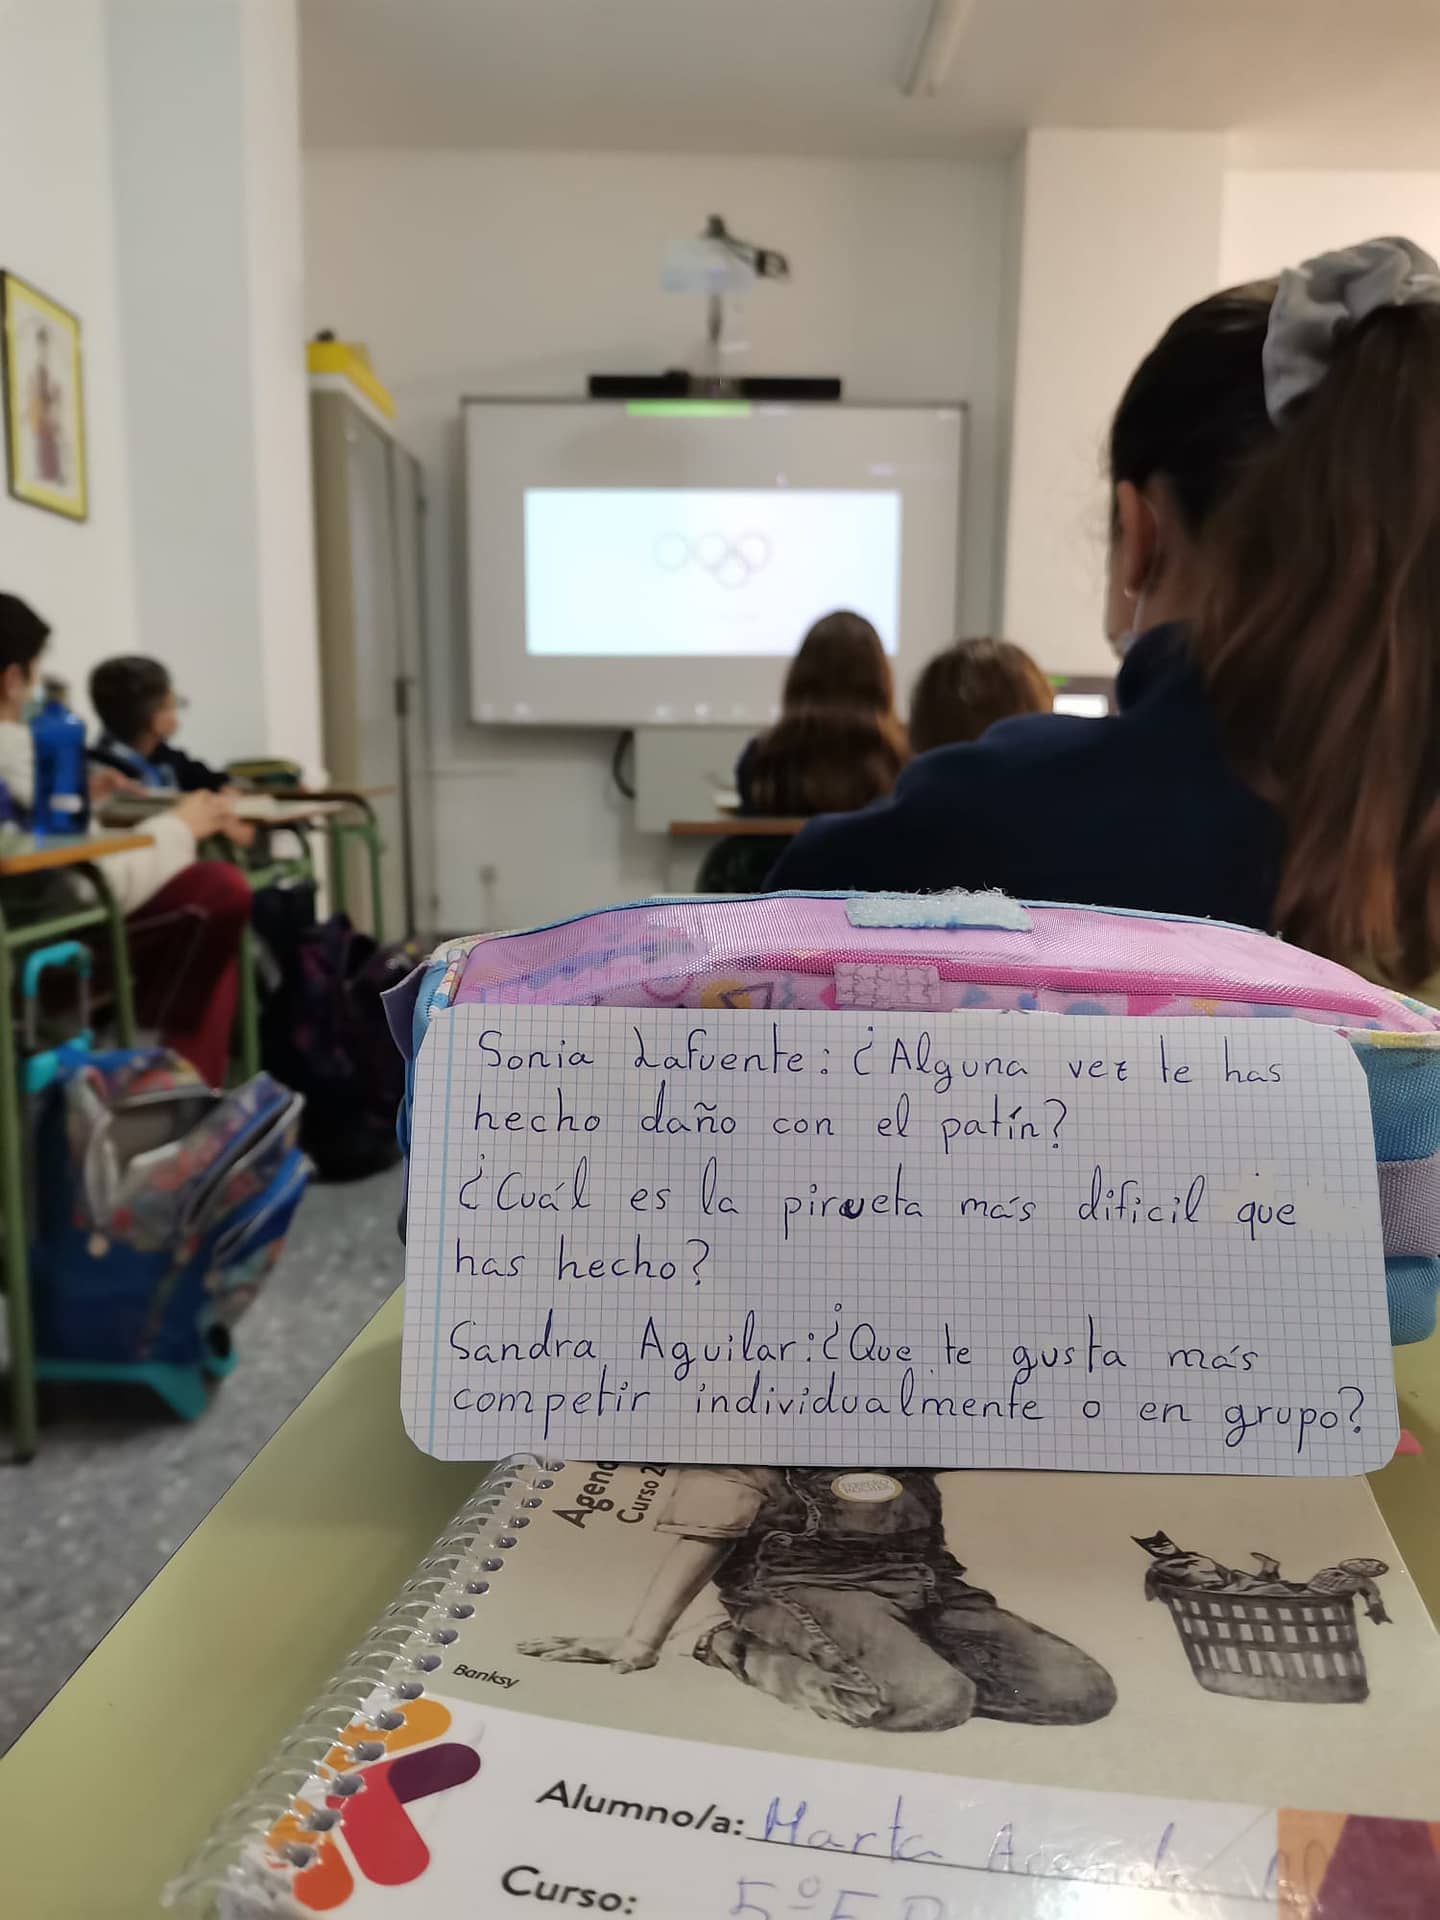 Sonia Lafuente: ¿Alguna vez te has
hecho daño con el patín?
¿Cuál es la pirueta más dificil que
has hecho?
Sandra Aguilar: ¿Que te gusta más
competir individualmente o en grupo?
Curso 2
Banksy
Alumno/a: Marta
Curso: 5º